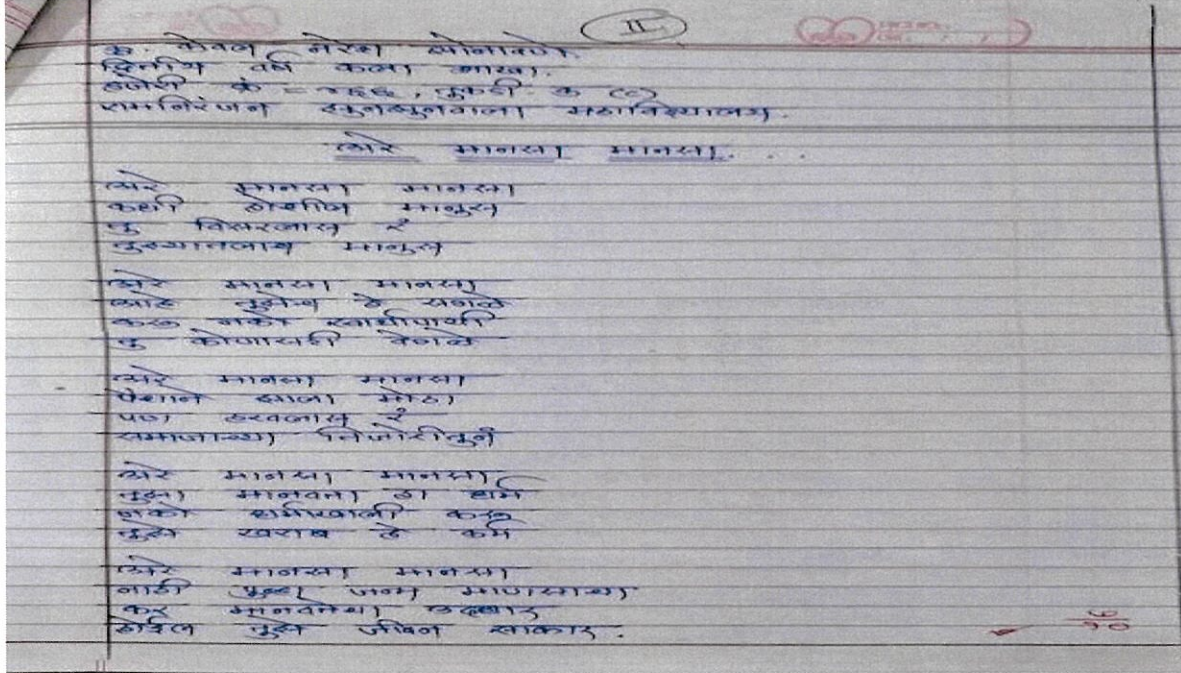 II
कु. केवल नरेश सोनावणे.
द्वितीय वर्ष कला शाखा.
हजेरी क्रं = २६६, तुकडी- क (C)
रामनिरंजन झुनझुनवाला महाविद्यालय.
अरे मानसा मानसा. . .
अरे मानसा मानसा
कधी होशील माणुस
तु विसरलास रे
तुझ्यातलाच माणुस
अरे मानसा मानसा
आहे तुझेच हे सगळे
करु नको स्वार्थापायी
तु कोणासही वेगळे
अरे मानसा मानसा
पैशाने झाला मोठा
पण हरवलास रे
समाजाच्या तिजोरीतुन
अरे मानसा मानसा
तुझा मानवता हा धर्म
नको धर्माखाली करु
तुझे खराब हे कर्म
अरे मानसा मानसा
नाही पुन्हा जन्म माणसाचा
कर मानवतेचा उद्धार
होईल तुझे जीवन साकार.